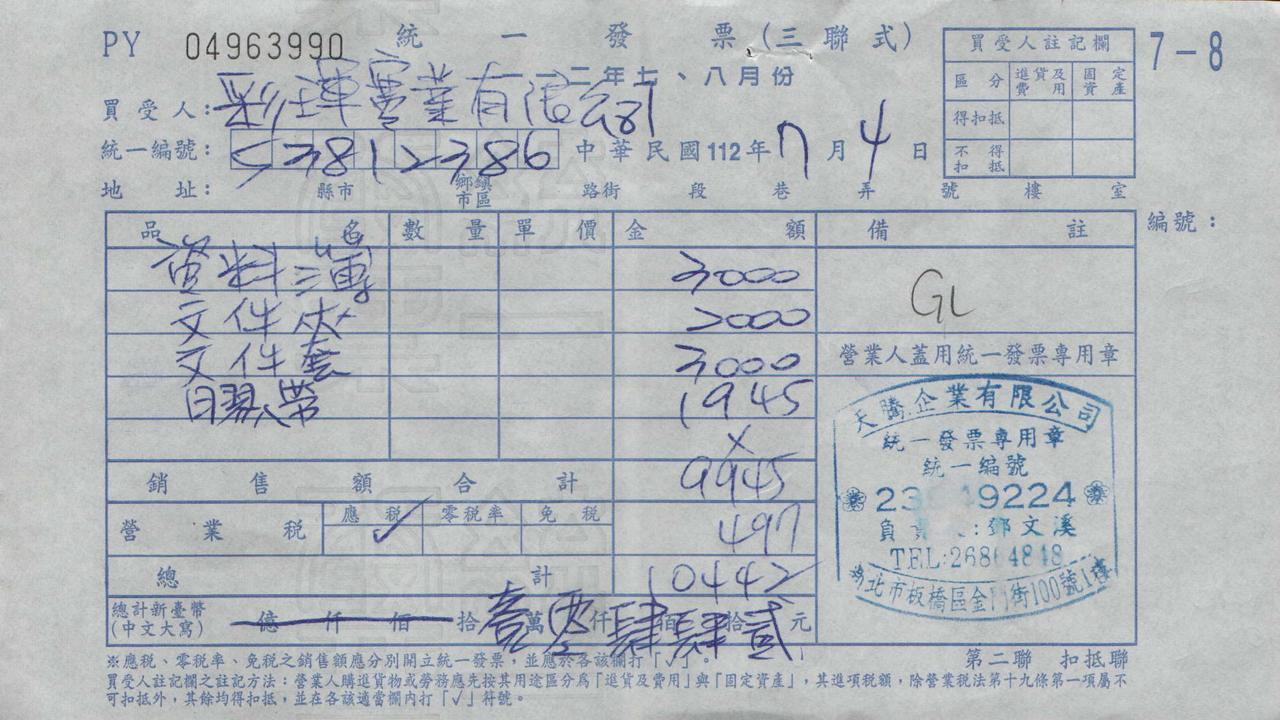 PY 04963990 統一發票(三聯式)
一一二年七、八月份
7-8
買受人註記欄
區分 進貨及費用 固定資產
得扣抵
不得扣抵
買受人: 彩琿實業有限公司
統一編號: 53812386 中華民國112年7月4日
地址: 縣市 鄉鎮市區 路街 段 巷 弄 號 樓 室
編號:
品名 數量 單價 金額 備註
資料簿 3000
GL
文件夾 2000
文件套 3000
營業人蓋用統一發票專用章
1945
銷售額合計 9945
營業稅 應稅 ✓ 零稅率 免稅 497
總計 10442
總計新臺幣(中文大寫) 億 仟 佰 拾 壹萬 零仟 肆佰 肆拾 貳元
天騰企業有限公司
統一發票專用章
統一編號
23 49224
負 人:鄧文溪
TEL:26864848
北市板橋區金門街100號1樓
第二聯 扣抵聯
※應稅、零稅率、免稅之銷售額應分別開立統一發票,並應於各該欄打「✓」。
買受人註記欄之註記方法:營業人購進貨物或勞務應先按其用途區分為「進貨及費用」與「固定資產」,其進項稅額,除營業稅法第十九條第一項屬不
可扣抵外,其餘均得扣抵,並在各該適當欄內打「✓」符號。